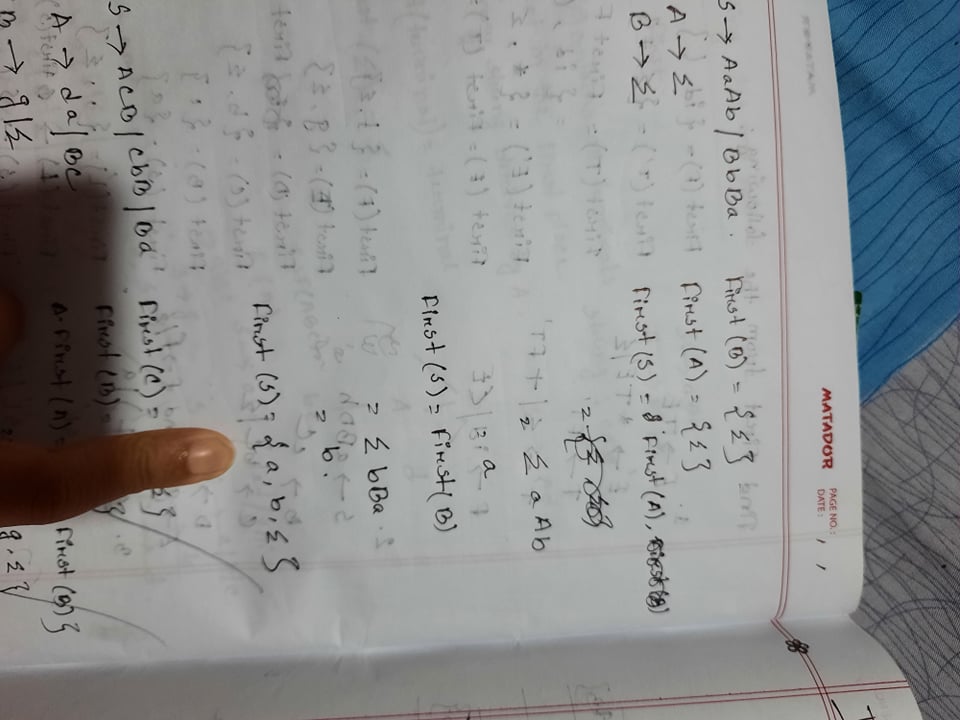 MATADOR
PAGE NO.:
DATE: , ,
S → AaAb | BbBa.
A → Σ
B → Σ
First (B) = {Σ}
First (A) = {Σ}
First (S) = First (A),
= Σ a Ab
= a
First (S) = First (B)
= Σ bBa
= b.
First (S) = {a, b, Σ}
S → ACB | CbB | Ba
A → da | BC
B → g | Σ
First (C) =
First (B) =
First (A) =
First (B)}
g, Σ}